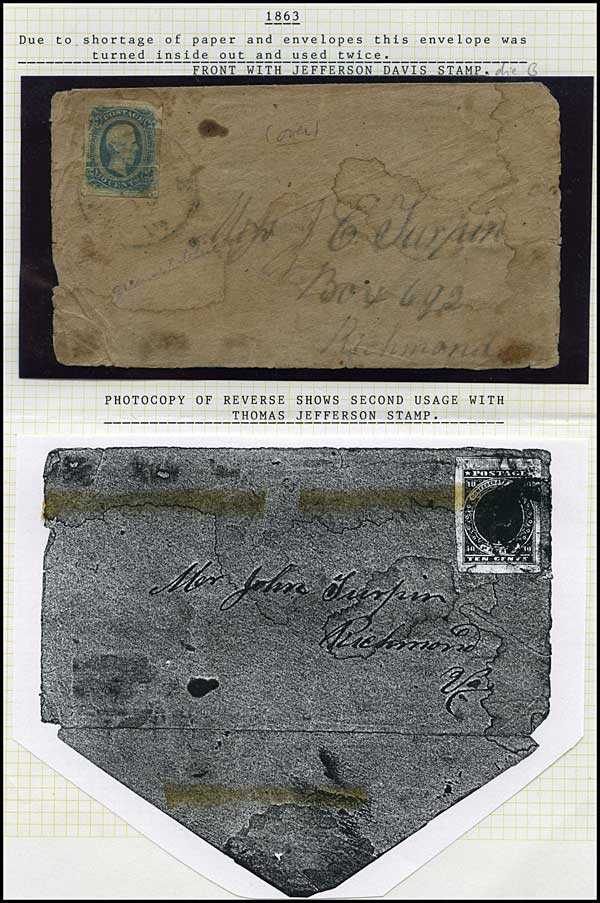 1863
Due to shortage of paper and envelopes this envelope was
turned inside out and used twice.
FRONT WITH JEFFERSON DAVIS STAMP. die B
POSTAGE
(over)
J E Turpin
Box 692
Richmond
PHOTOCOPY OF REVERSE SHOWS SECOND USAGE WITH
THOMAS JEFFERSON STAMP.
POSTAGE
10 10
10 10
TEN CENTS
John Turpin
Richmond
Va